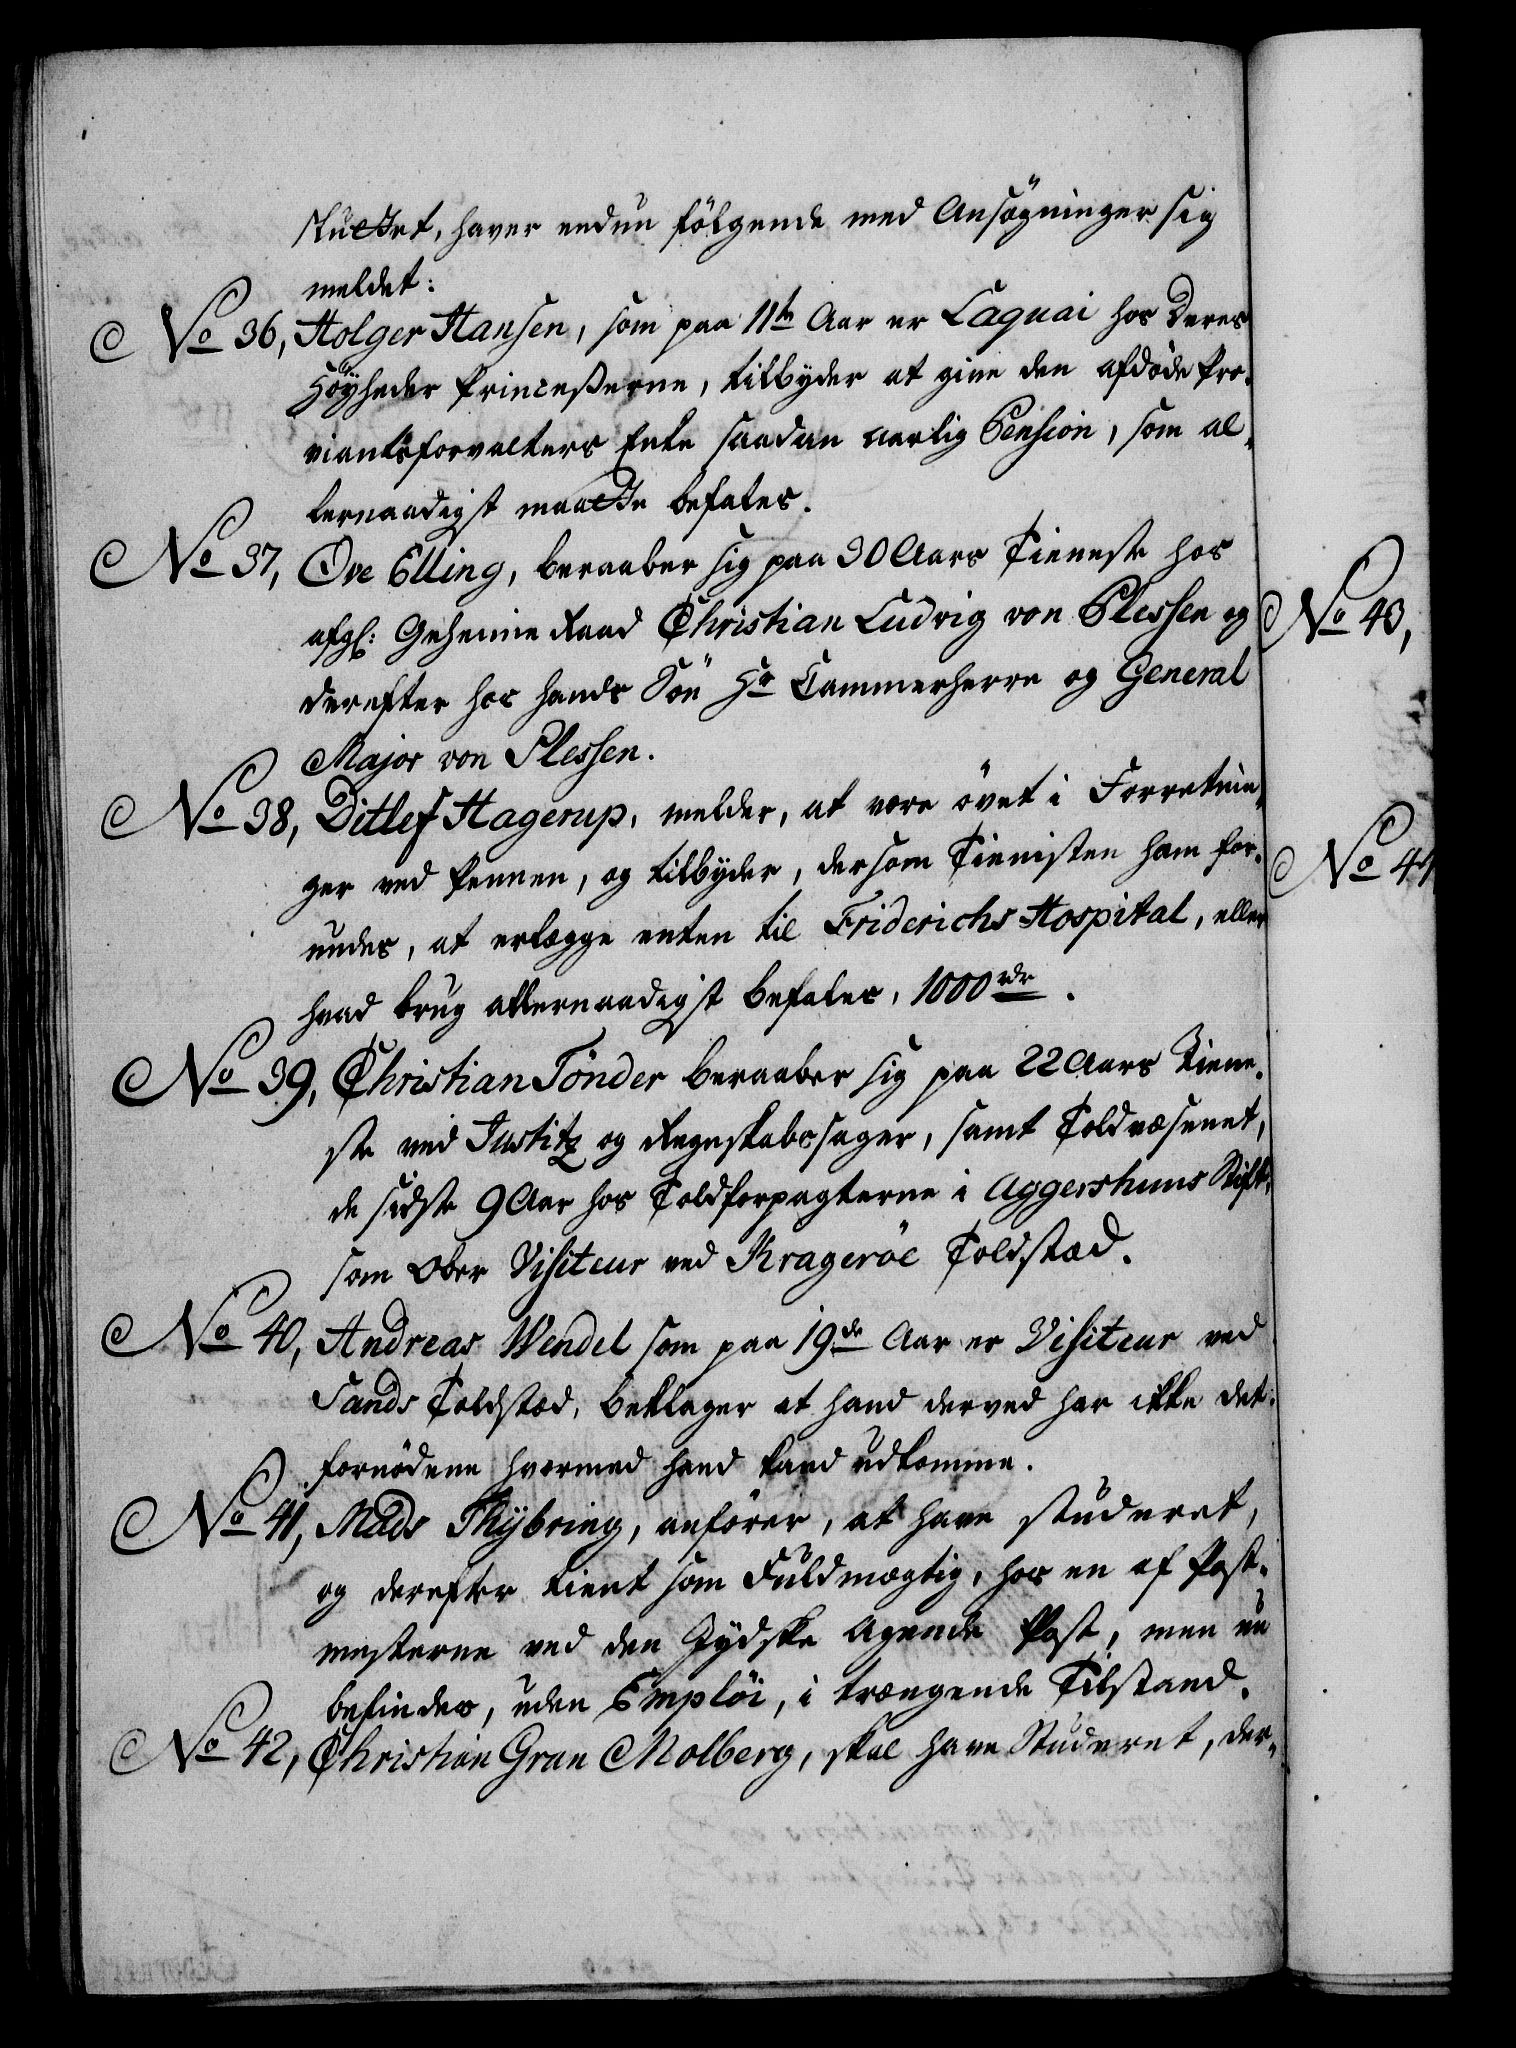 stuckket, haver endnu fölgende med Ansögninger sig
meldet:
No 36, Holger Hansen, som paa 11te Aar er Laquai hos Deres
Höyheder Princesserne, tilbyder at give den afdöde Pro-
viantsforvalters Enke saadan aarlig Pension, som al-
lernaadigst maatte befales.
No 37, Ove Elling, beraaber sig paa 30 Aars Tieneste hos
afgl: Geheime Raad Christian Ludvig von Plessen og
derefter hos hands Sön Hr Cammerherre og General
Major von Plessen.
No 38, Ditlef Hagerup, melder, at være övet i Forretnin-
ger ved Pennen, og tilbyder, dersom Tienisten ham for-
undes, at erlægge enten til Friderichs Hospital, eller
hvad brug allernaadigst befales, 1000 rdr.
No 39, Christian Tönder beraaber sig paa 22 Aars Tiene-
ste ved Justitz og Regnskabssager, samt Toldvæsenet,
de sidste 9 Aar hos Toldforpagterne i Aggershuus Stift,
som Ober Visiteur ved Krageröe Toldstæd.
No 40, Andreas Wendel som paa 19de Aar er Visiteur ved
Sands Toldstæd, beklager at hand derved har ikke det
fornödene hvormed hand kand udkomme.
No 41, Mads Thybring, anförer, at have studeret,
og derefter tient som Fuldmægtig, hos en af Post-
mesterne ved den Jydske agende Post, men nu
befindes, uden Emplöi, i trængende Tilstand.
No 42, Christian Gran Molberg, skal have Studeret, der-
No 43,
No 44